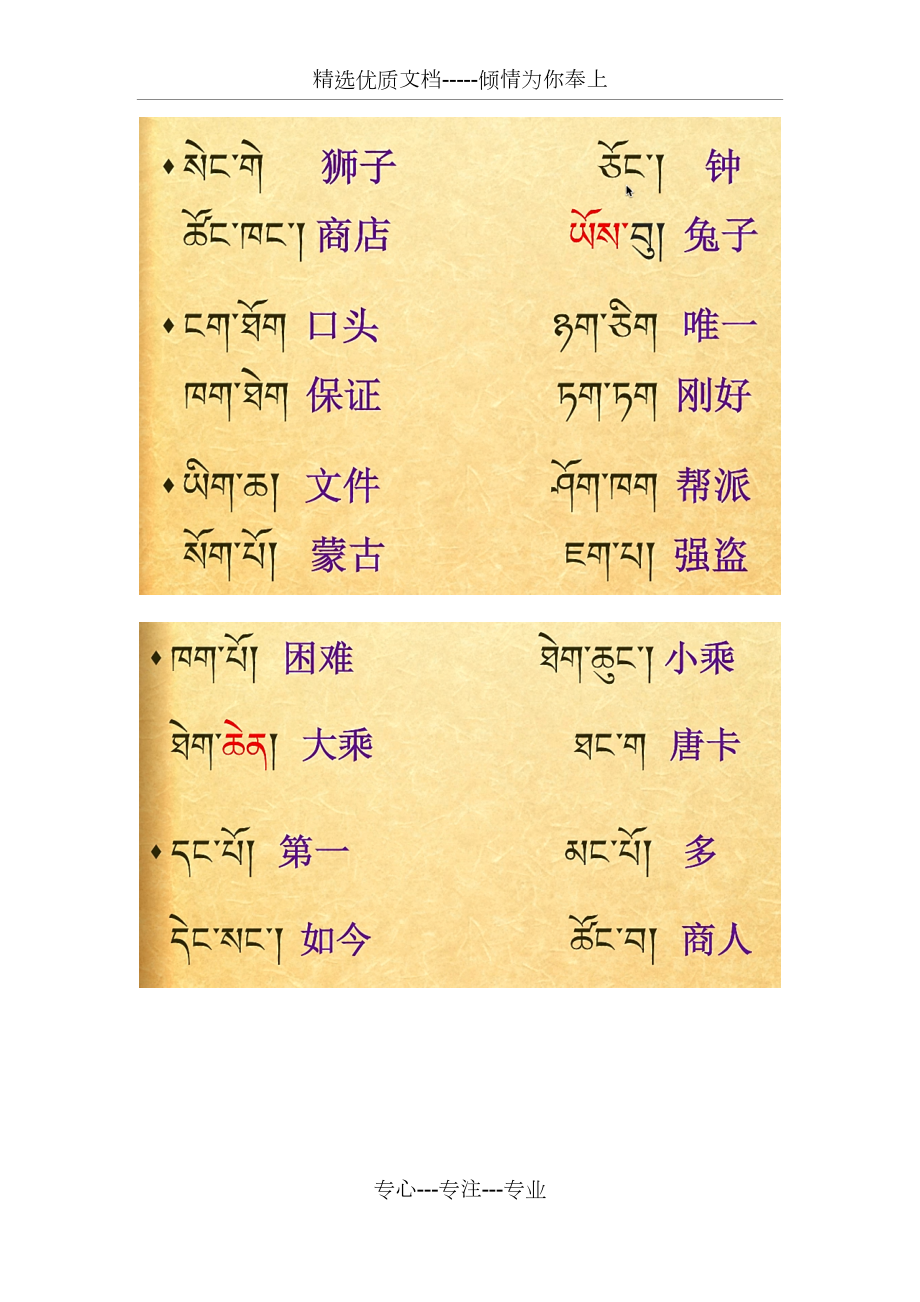 精选优质文档-----倾情为你奉上
♦ སེང་གེ 狮子 ཅོང་། 钟
ཚོང་ཁང་། 商店 ཡོས་བུ། 兔子
♦ ངག་ཐོག 口头 ཉག་ཅིག 唯一
ཁག་ཐེག 保证 ཏག་ཏག 刚好
♦ ཡིག་ཆ། 文件 ཤོག་ཁག 帮派
སོག་པོ། 蒙古 ཇག་པ། 强盗
♦ ཁག་པོ། 困难 ཐེག་ཆུང་། 小乘
ཐེག་ཆེན། 大乘 ཐང་ག 唐卡
♦ དང་པོ། 第一 མང་པོ། 多
དེང་སང་། 如今 ཚོང་བ། 商人
专心---专注---专业